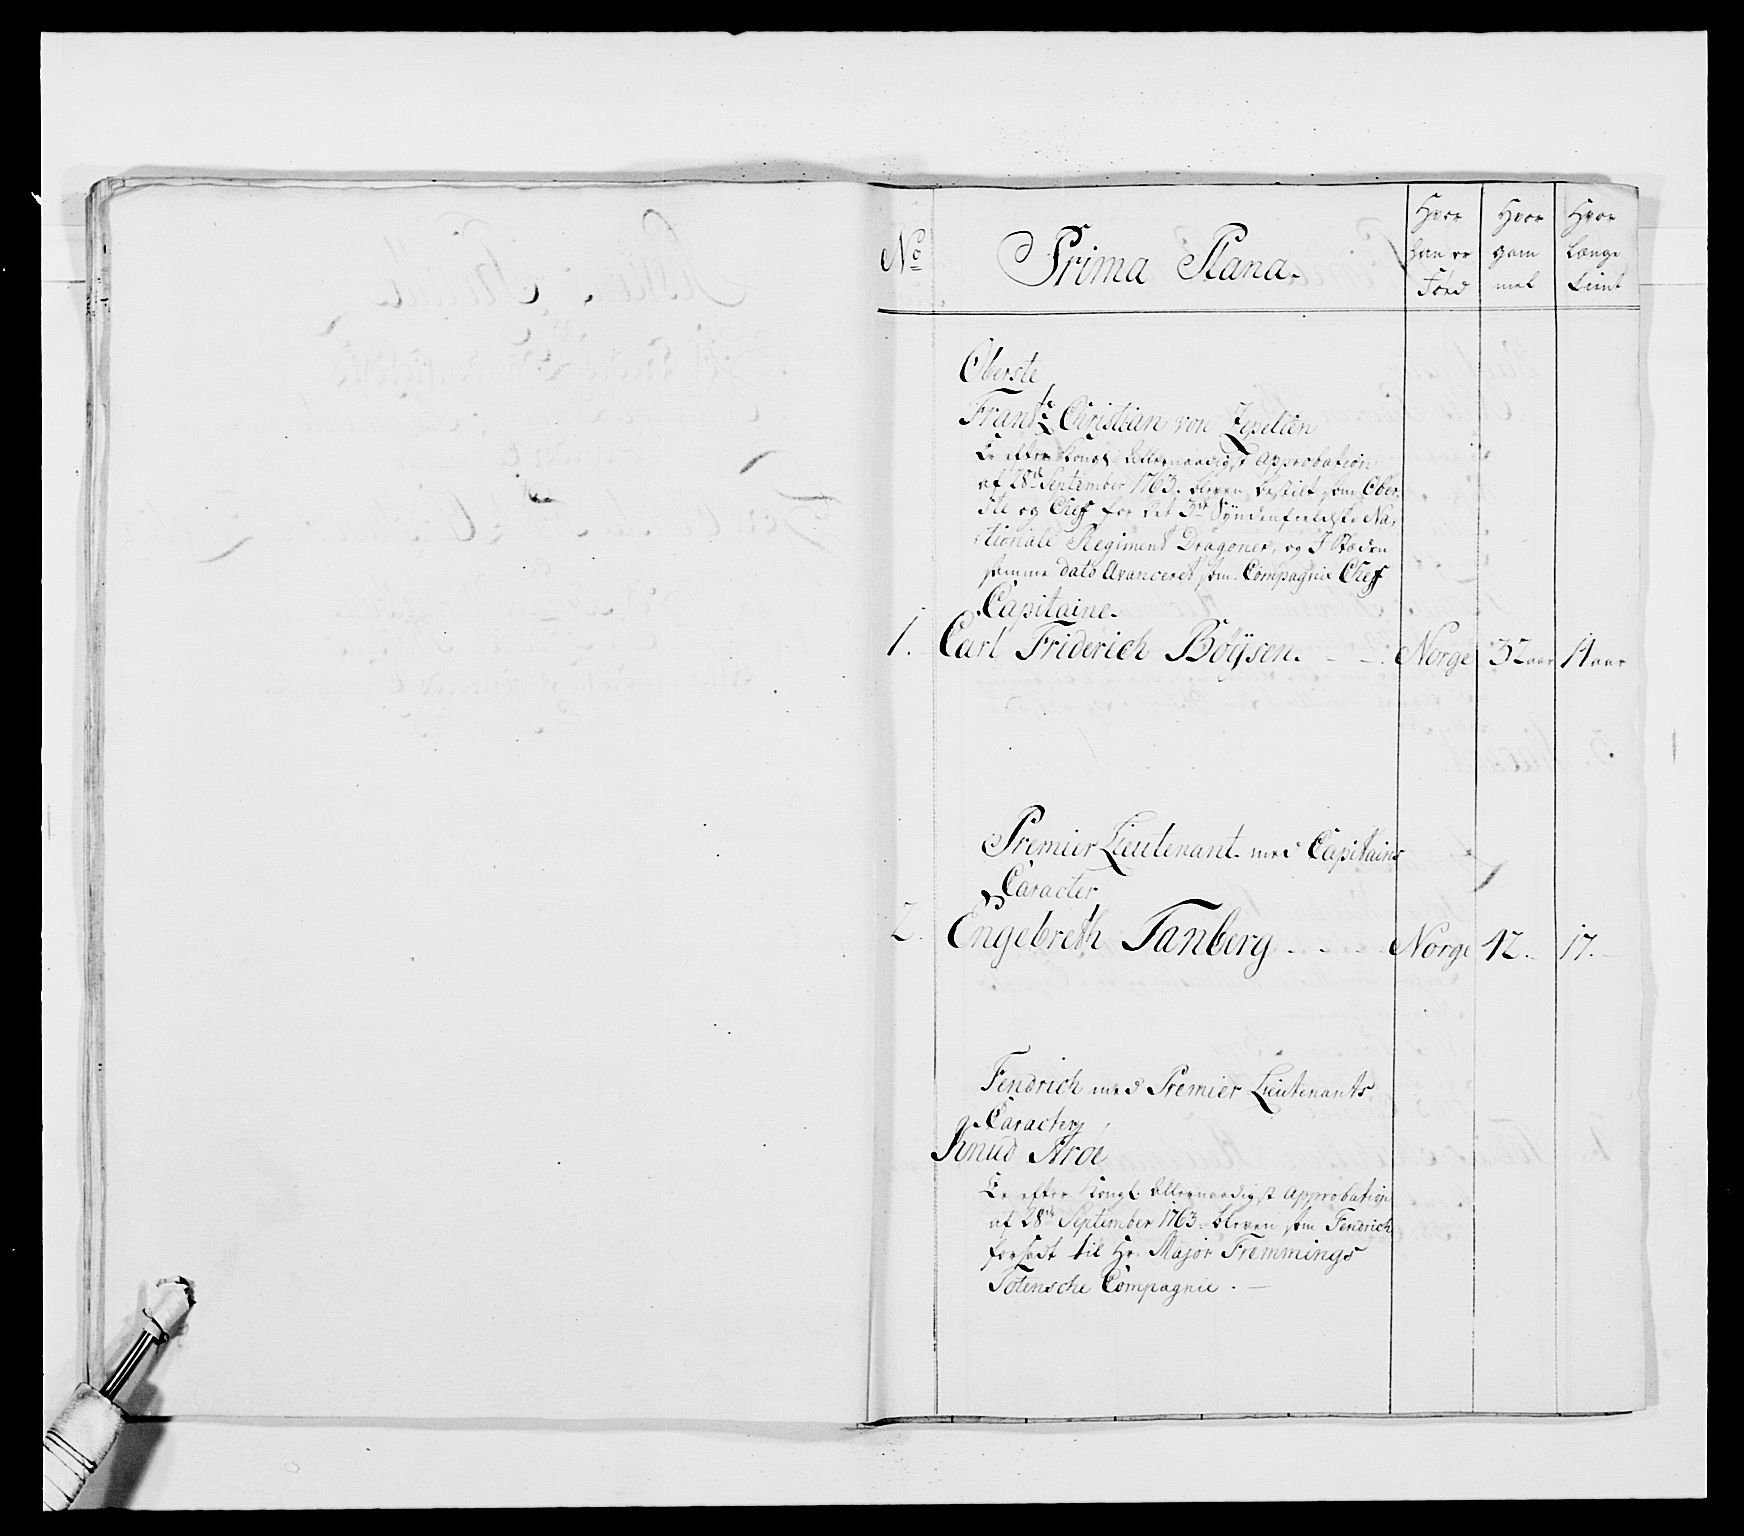 No
Prima Plana.
Hvor
han er
Fød
Hvor
gam
mel
Hvor
Længe
tient
Oberste
Frantz Christian von Zepelien
Er efter Kongl: Allernaadigst Approbation
af 28de September 1763. bleven bestilt som Ober-
ste og Chef for det 3de Syndenfieldske Na-
tionale Regiment Dragoner, og I Stæden
samme dato Avanceret som Compagnie Chef
Capitaine.
1. Carl Friderich Böÿsen. - - Norge 32 aar 14 aar
Premier Lieutenant med Capitains
Caracter
2. Engebreth Tanberg - - - Norge 42. 17. -
Fendrich med Premier Lieutenants
Caracter
Knud Aroe
Er efter Kongl. Allernaadigst Approbation
af 28de September 1763. bleven som Fendrich
forsadt til Hr. Major Fremmings
Totensche Compagnie. -